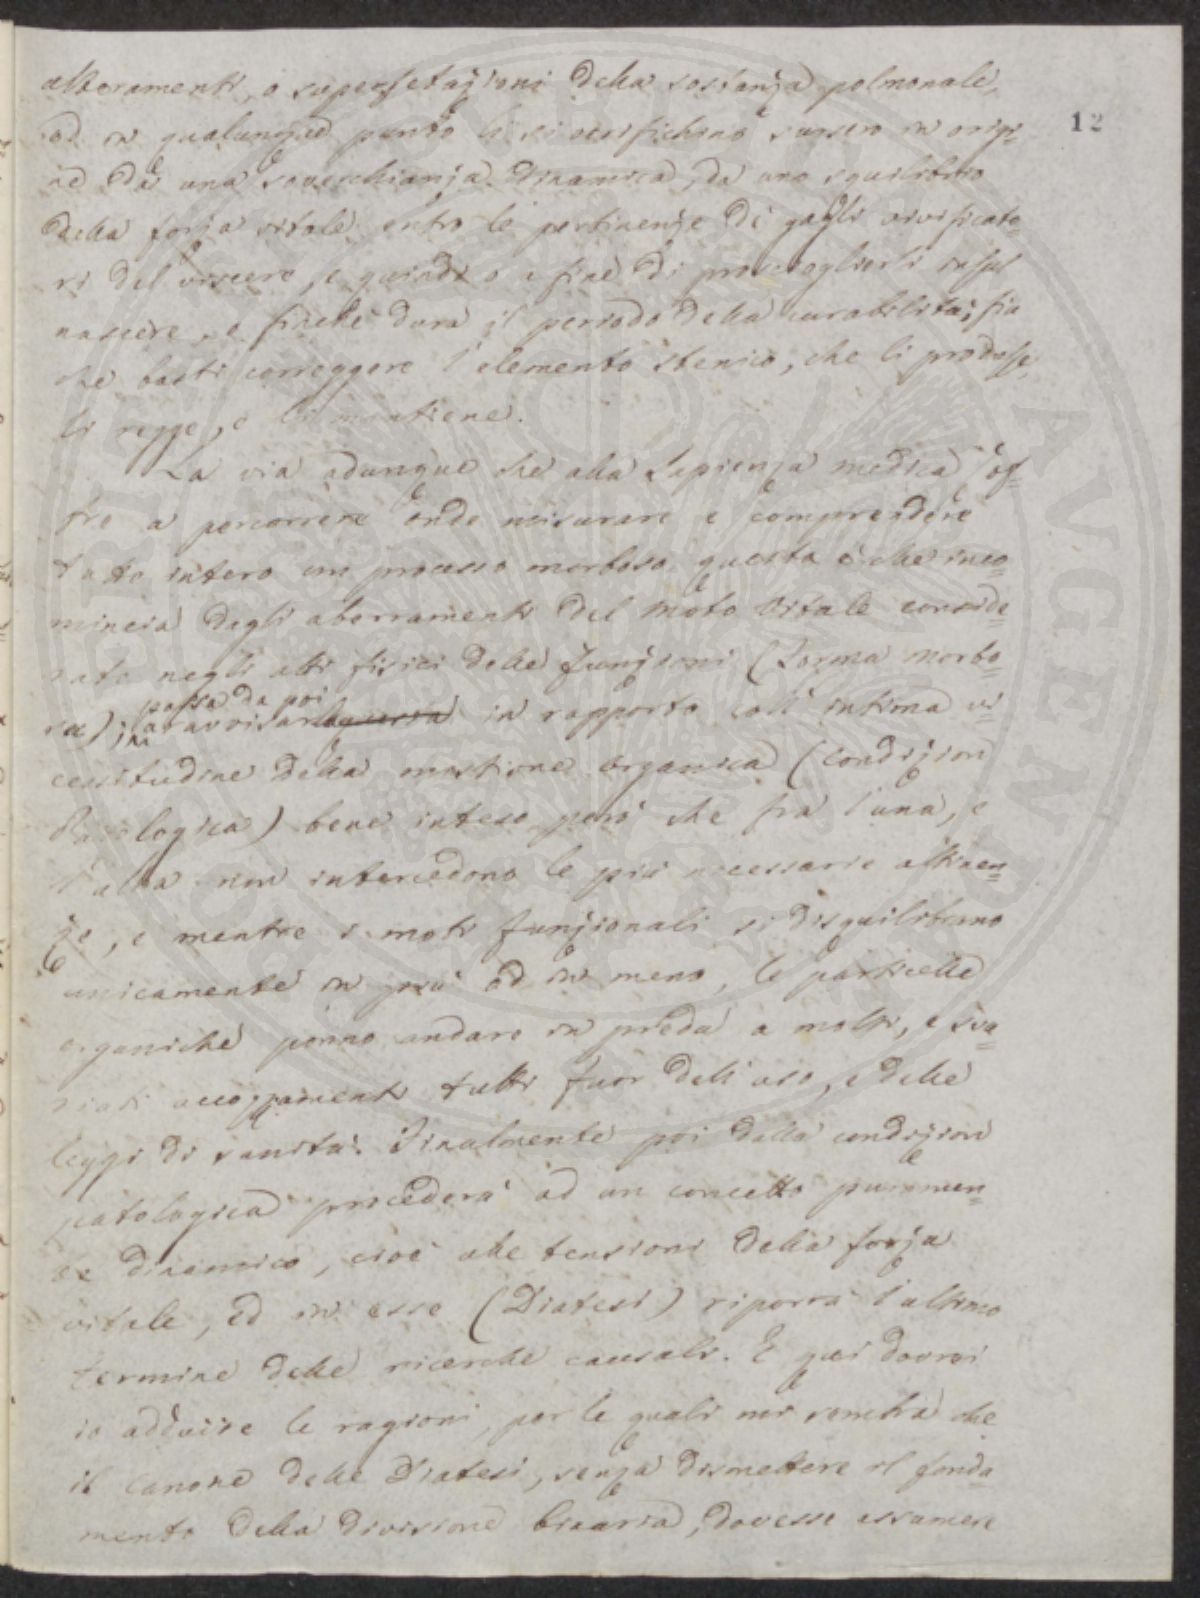 alteramenti, o superfetazioni della sostanza polmonale,
od in qualunque punto li si verifichino sursero in origi=
12
ne da una soverchianza dinamica, da uno squilibrio
della forza vitale entro le pertinenze di gagli vivificato=
ri del viscere, e quindi o a fine di prosciogliersi sul
nascere, e finché dura il periodo della curabilità; fia
che basti correggere l'elemento stenico, che li produsse,
li regge, e li mantiene.
La via adunque che alla Sapienza medica s'of=
fre a percorrere onde misurare e comprendere
tutto intero un processo morboso, questa è che inco=
mincia dagli aberramenti del moto vitale conside=
rato negli atti fisici delle funzioni (Forma morbo=
passa da poi
sa); a ravvisar in rapporto coll' intima vi=
cessitudine della mistione organica (Condizion
Patologica) bene inteso però che fra l'una, e
l'altra non intercedono le più necessarie attinen=
ze, e mentre i moti funzionali si disquilibrano
unicamente in più od in meno, le particelle
organiche ponno andare in preda a molti, e sva=
riati accoppiamenti tutti fuor dell' uso, e delle
leggi di sanità. Finalmente poi dalla condizion
patologica procederà ad un concetto puramen=
te dinamico, cioè alle tensioni della forza
vitale, ed in esse (Diatesi) riporrà l'ultimo
termine delle ricerche causali. E qui dovrei
io addurre le ragioni, per le quali mi sembra che
il canone delle Diatesi, senza dismettere il fonda=
mento della divisione binaria, dovesse assumere